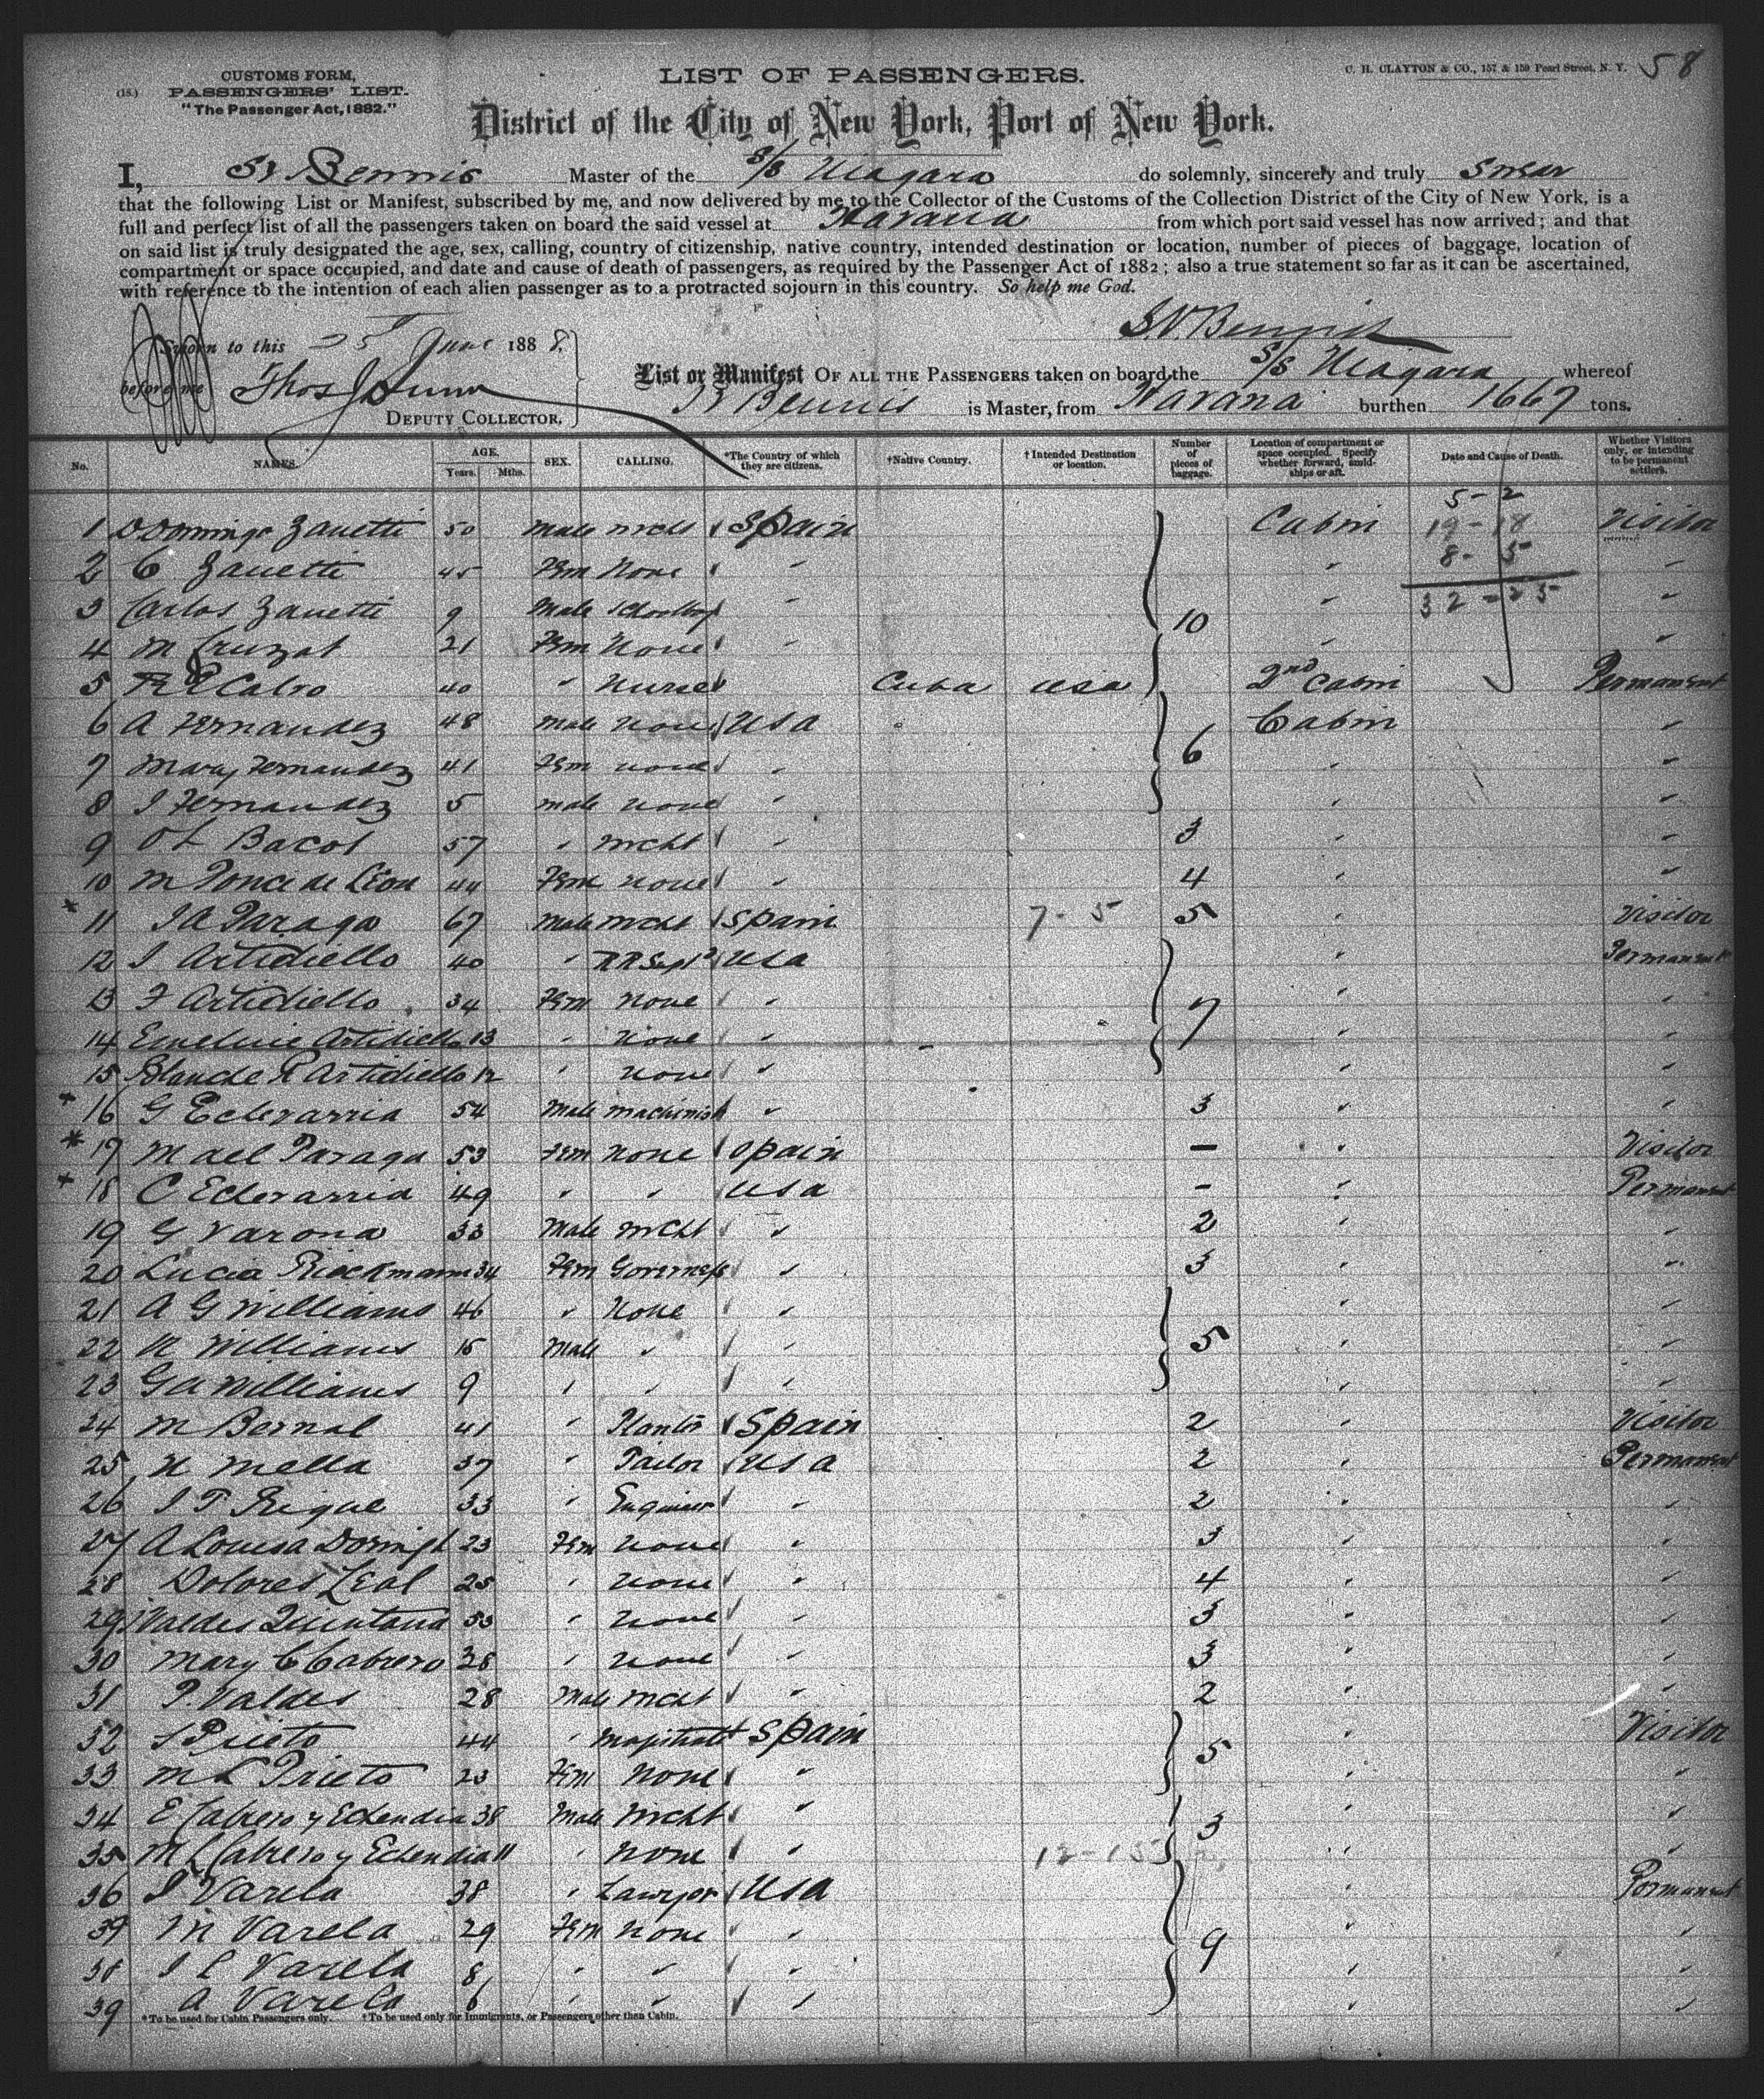 58
CUSTOMS FORM,
(18.) PASSENGERS' LIST.
"The Passenger Act, 1882."
LIST OF PASSENGERS.
C. H. CLAYTON & CO., 157 & 159 Pearl Street, N. Y.
District of the City of New York, Port of New York.
I, Bennis Master of the S/S Niagara do solemnly, sincerely and truly swear
that the following List or Manifest, subscribed by me, and now delivered by me to the Collector of the Customs of the Collection District of the City of New York, is a
full and perfect list of all the passengers taken on board the said vessel at Havana from which port said vessel has now arrived; and that
on said list is truly designated the age, sex, calling, country of citizenship, native country, intended destination or location, number of pieces of baggage, location of
compartment or space occupied, and date and cause of death of passengers, as required by the Passenger Act of 1882; also a true statement so far as it can be ascertained,
with reference to the intention of each alien passenger as to a protracted sojourn in this country. So help me God.
Bennis
Sworn to this 25 June 1888.
before me Thos J Dunn
DEPUTY COLLECTOR.
List or Manifest OF ALL THE PASSENGERS taken on board the S/S Niagara whereof
Bennis is Master, from Havana burthen 1667 tons.
No. NAMES. AGE. Years. Mths. SEX. CALLING. *The Country of which they are citizens. †Native Country. †Intended Destination or location. Number of pieces of baggage. Location of compartment or space occupied. Specify whether forward, amidships or aft. Date and Cause of Death. Whether Visitors only, or intending to be permanent settlers.
5-2
1 Domingo Zanetti 50 Male mcht Spain Cabin 19-18 Visitor
8-5
2 C Zanetti 45 Fem None "
32-25
3 Carlos Zanetti 9 Male Schoolboy " 10
4 M Cruzat 21 Fem None "
5 Calvo 40 " Nurse Cuba USA 2nd Cabin Permanent
6 A Fernandez 48 Male none USA 6 Cabin "
7 Mary Fernandez 41 Fem none " " "
8 J Fernandez 5 male none " " "
9 Bacot 57 " mcht " 3 " "
10 M Ponce de Leon 44 Fem none " 4 " "
11 Parago 67 Male mcht Spain 7-5 5 " Visitor
12 J Artidiello 40 " RR Supt USA " Permanent
13 F Artidiello 34 Fem none " 7 " "
14 Emeline Artidiello 13 " none " " "
15 Blanche R Artidiello 12 " none " " "
16 G Echevarria 54 Male machinist " 3 " "
17 Parago 53 Fem none Spain — " Visitor
18 C Echevarria 49 " " USA - " Permanent
19 G Varona 33 Male mcht " 2 " "
20 Lucia Rieckmann 34 Fem Governess " 3 " "
21 A G Williams 46 " None " " "
22 Williams 15 Male " " 5 " "
23 G A Williams 9 " " " "
24 M Bernal 41 " Planter Spain 2 " Visitor
25 N Mella 37 " Tailor USA 2 " Permanent
26 33 " Engineer " 2 " "
27 A Louisa 23 Fem none " 3 " "
28 Dolores Leal 25 " none " 4 " "
29 Valdes Quintana 53 " none " 3 " "
30 Mary C Cabrero 38 " none " 3 " "
31 P. Valdes 28 Male mcht " 2 " "
32 S Prieto 44 " Magistrate Spain 5 " Visitor
33 M L Prieto 23 Fem none " " "
34 E Cabrero y Echendia 38 Male mcht " 3 " "
35 M L Cabrero y Echendia 11 " none " " "
36 J Varela 38 " Lawyer USA " Permanent
39 M Varela 29 Fem none " 9 " "
38 J L Varela 8 " " " " "
39 A Varela 6 " " " " "
*To be used for Cabin Passengers only. †To be used only for Immigrants, or Passengers other than Cabin.